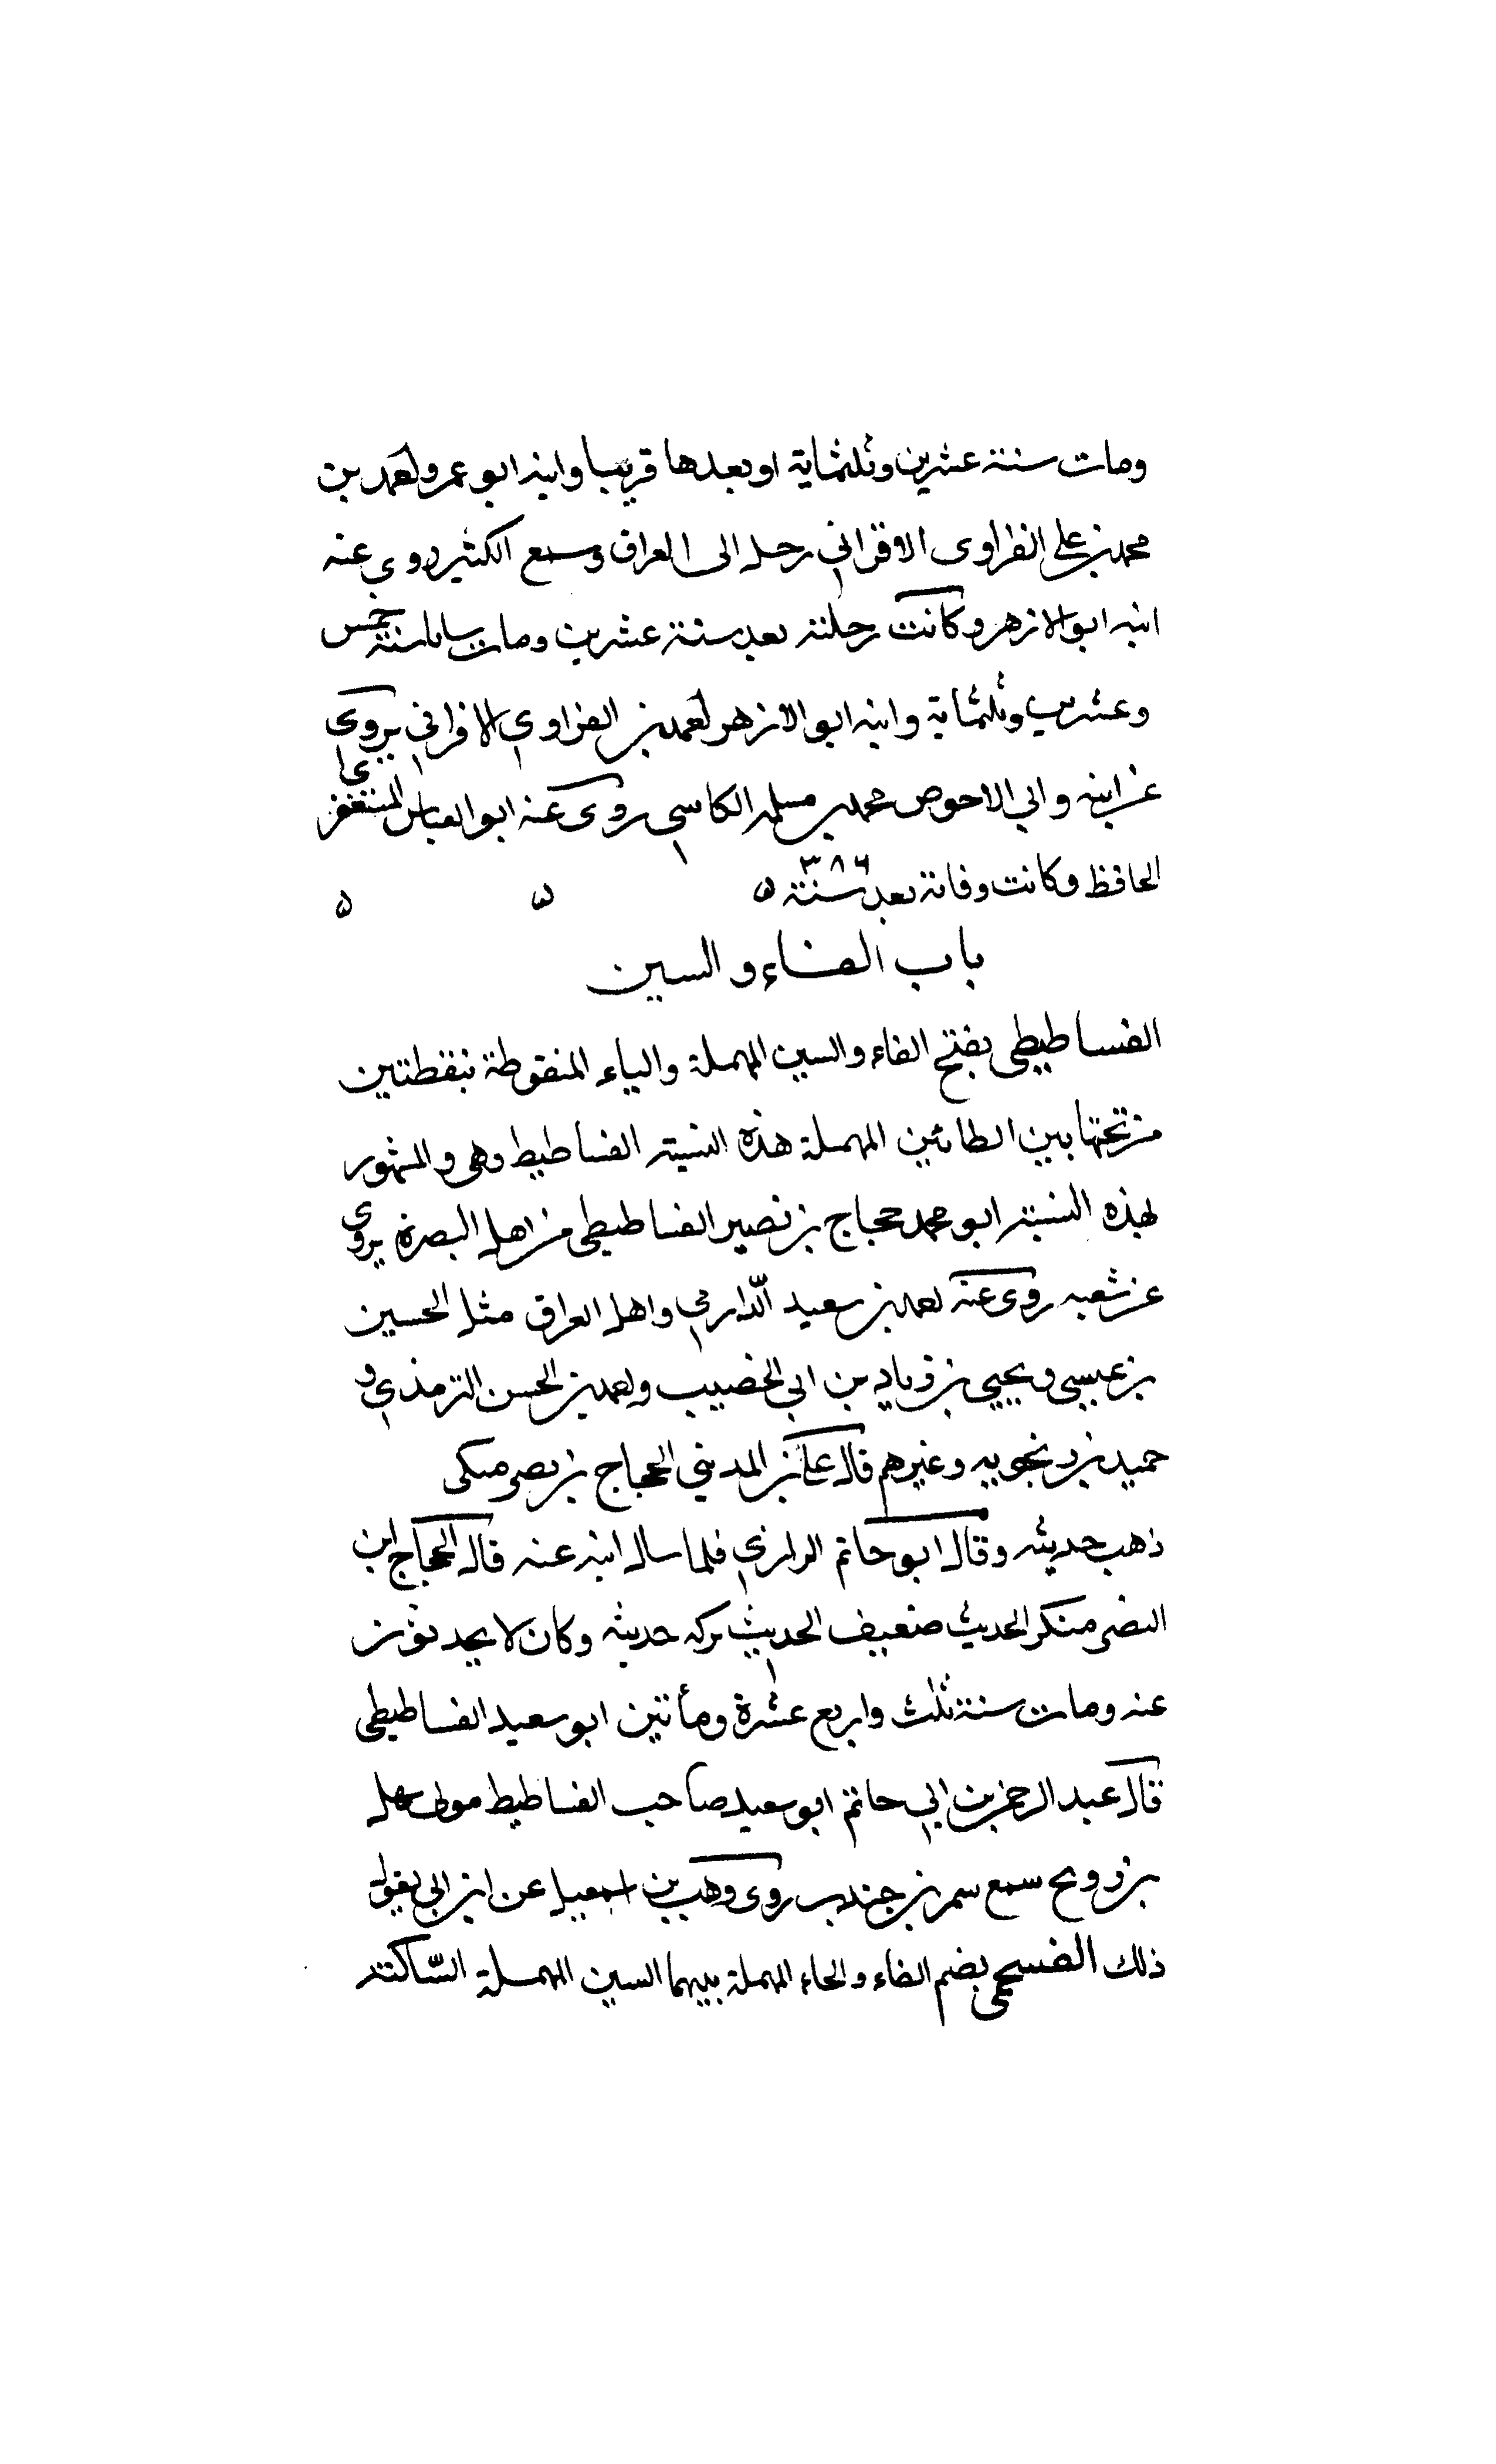 ومات سنة عشرين وثلثماية او بعدها قريبا وابنه ابو عمرو احمد بن
محمد بن علي الفراوى الاقراني رحل الى العراق وسمع الكثير روى عنه
ابنه ابو الازهر وكانت رحلته بعد سنة عشرين ومات سنة خمس
وعشرين وثلثماية وابنه ابو الازهر احمد بن الفراوي الافراني يروى
عن ابيه وابي الاحوص محمد بن مسلمه الكاسي روى عنه ابو العباس المستغفرى
الحافظ وكانت وفاته بعد سنة ٣٨٦ ه ه ه
باب الفاء و السين
الفساطيطي بفتح الفاء والسين المهملة والياء المنقوطة بنقطتين
من تحتها بين الطائين المهملة هذه النسبة الفساطيط وهى و المشهور
بهذه النسبة ابو محمد حجاج بن نصير الفساطيطي من اهل البصرة يروى
عن شعبه روى عنه احمد بن سعيد الدّارمي واهل العراق مثل الحسين
بن عيسى ويحيى بن زياد بن ابي الخصيب واحمد بن الحسن الترمذي و
حميد بن زنجويه وغيرهم قال علي بن المديني الحجاج بن نصر
ذهب حديثه وقال ابو حاتم الرازي فلما ساله ابنه عنه قال الحجاج ابن
النضر منكر الحديث ضعيف الحديث ترك حديثه وكان لا يحدثون
عنه ومات سنة ثلث واربع عشرة ومأتين ابو سعيد الفساطيطي
قال عبد الرحمن بن ابي حاتم ابو سعيد صاحب الفساطيط مولى مهلب
سمع سمر بن جندب روى وهب بن اسمعيل عن ابن ابي يقول
ذلك الفسحمي بضم الفاء والحاء المهملة بينهما السين المهملة السّاكنة